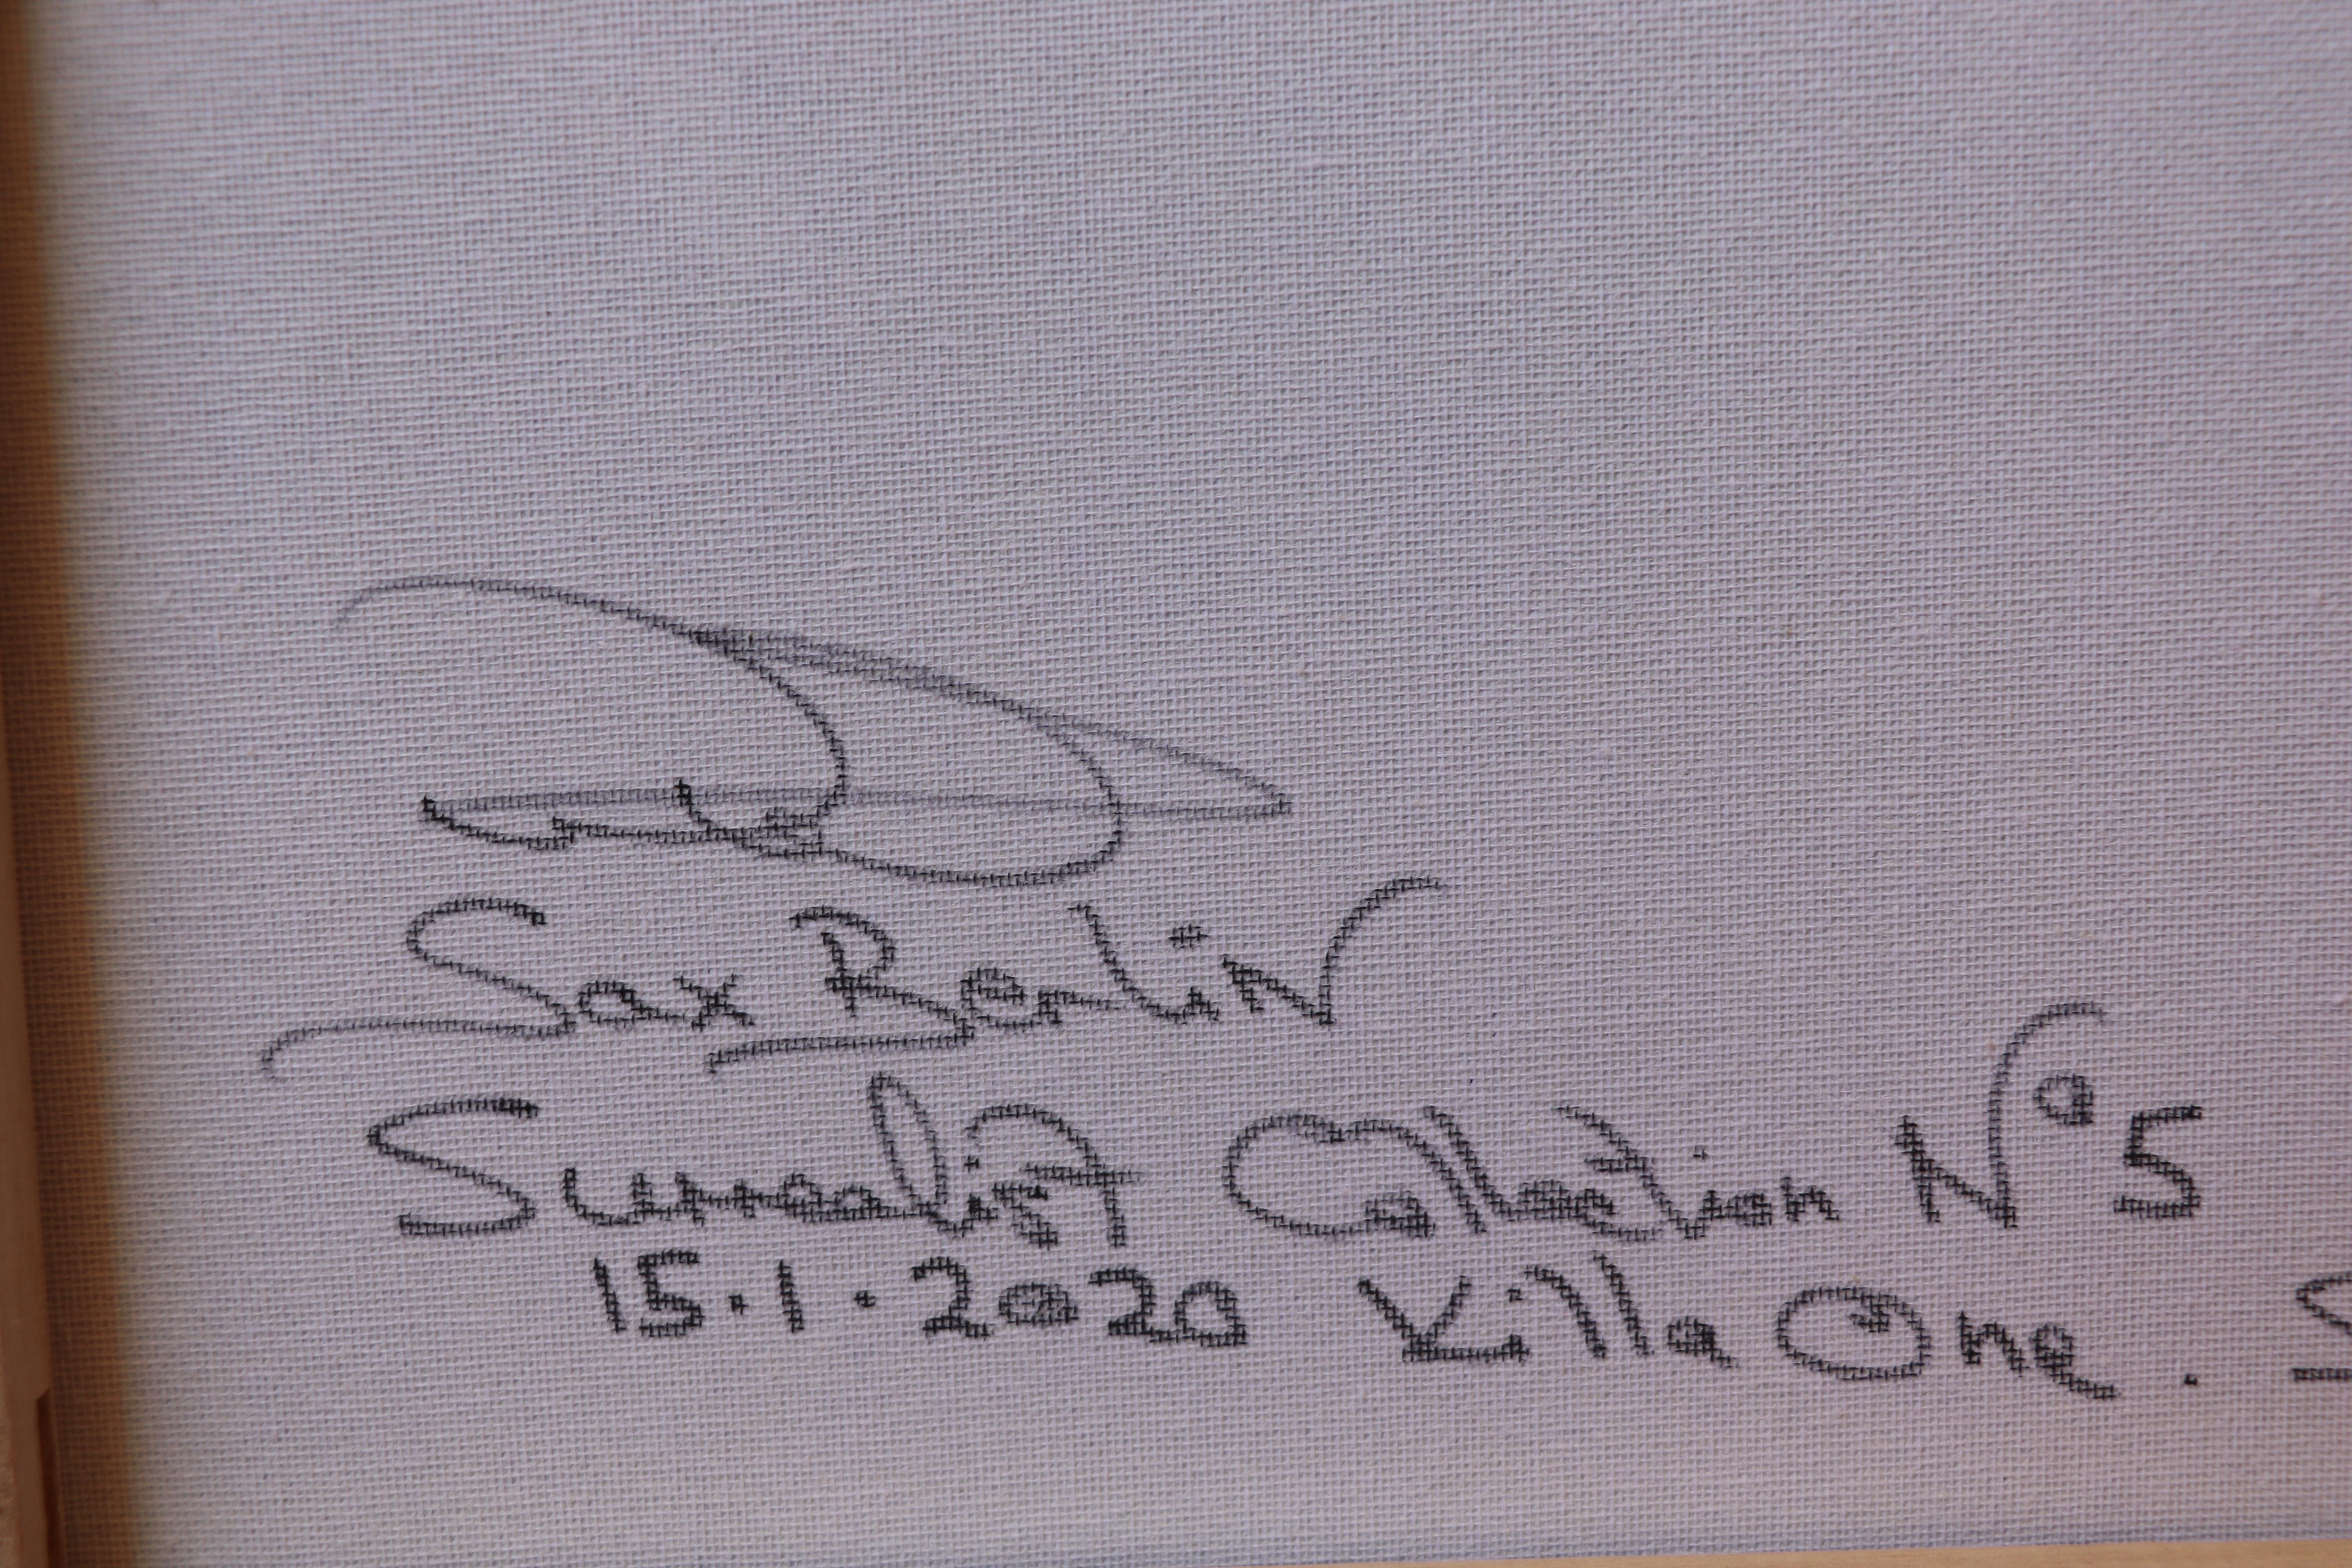 Sax Berlin
Collection N°5
15.1.2020 Villa One.